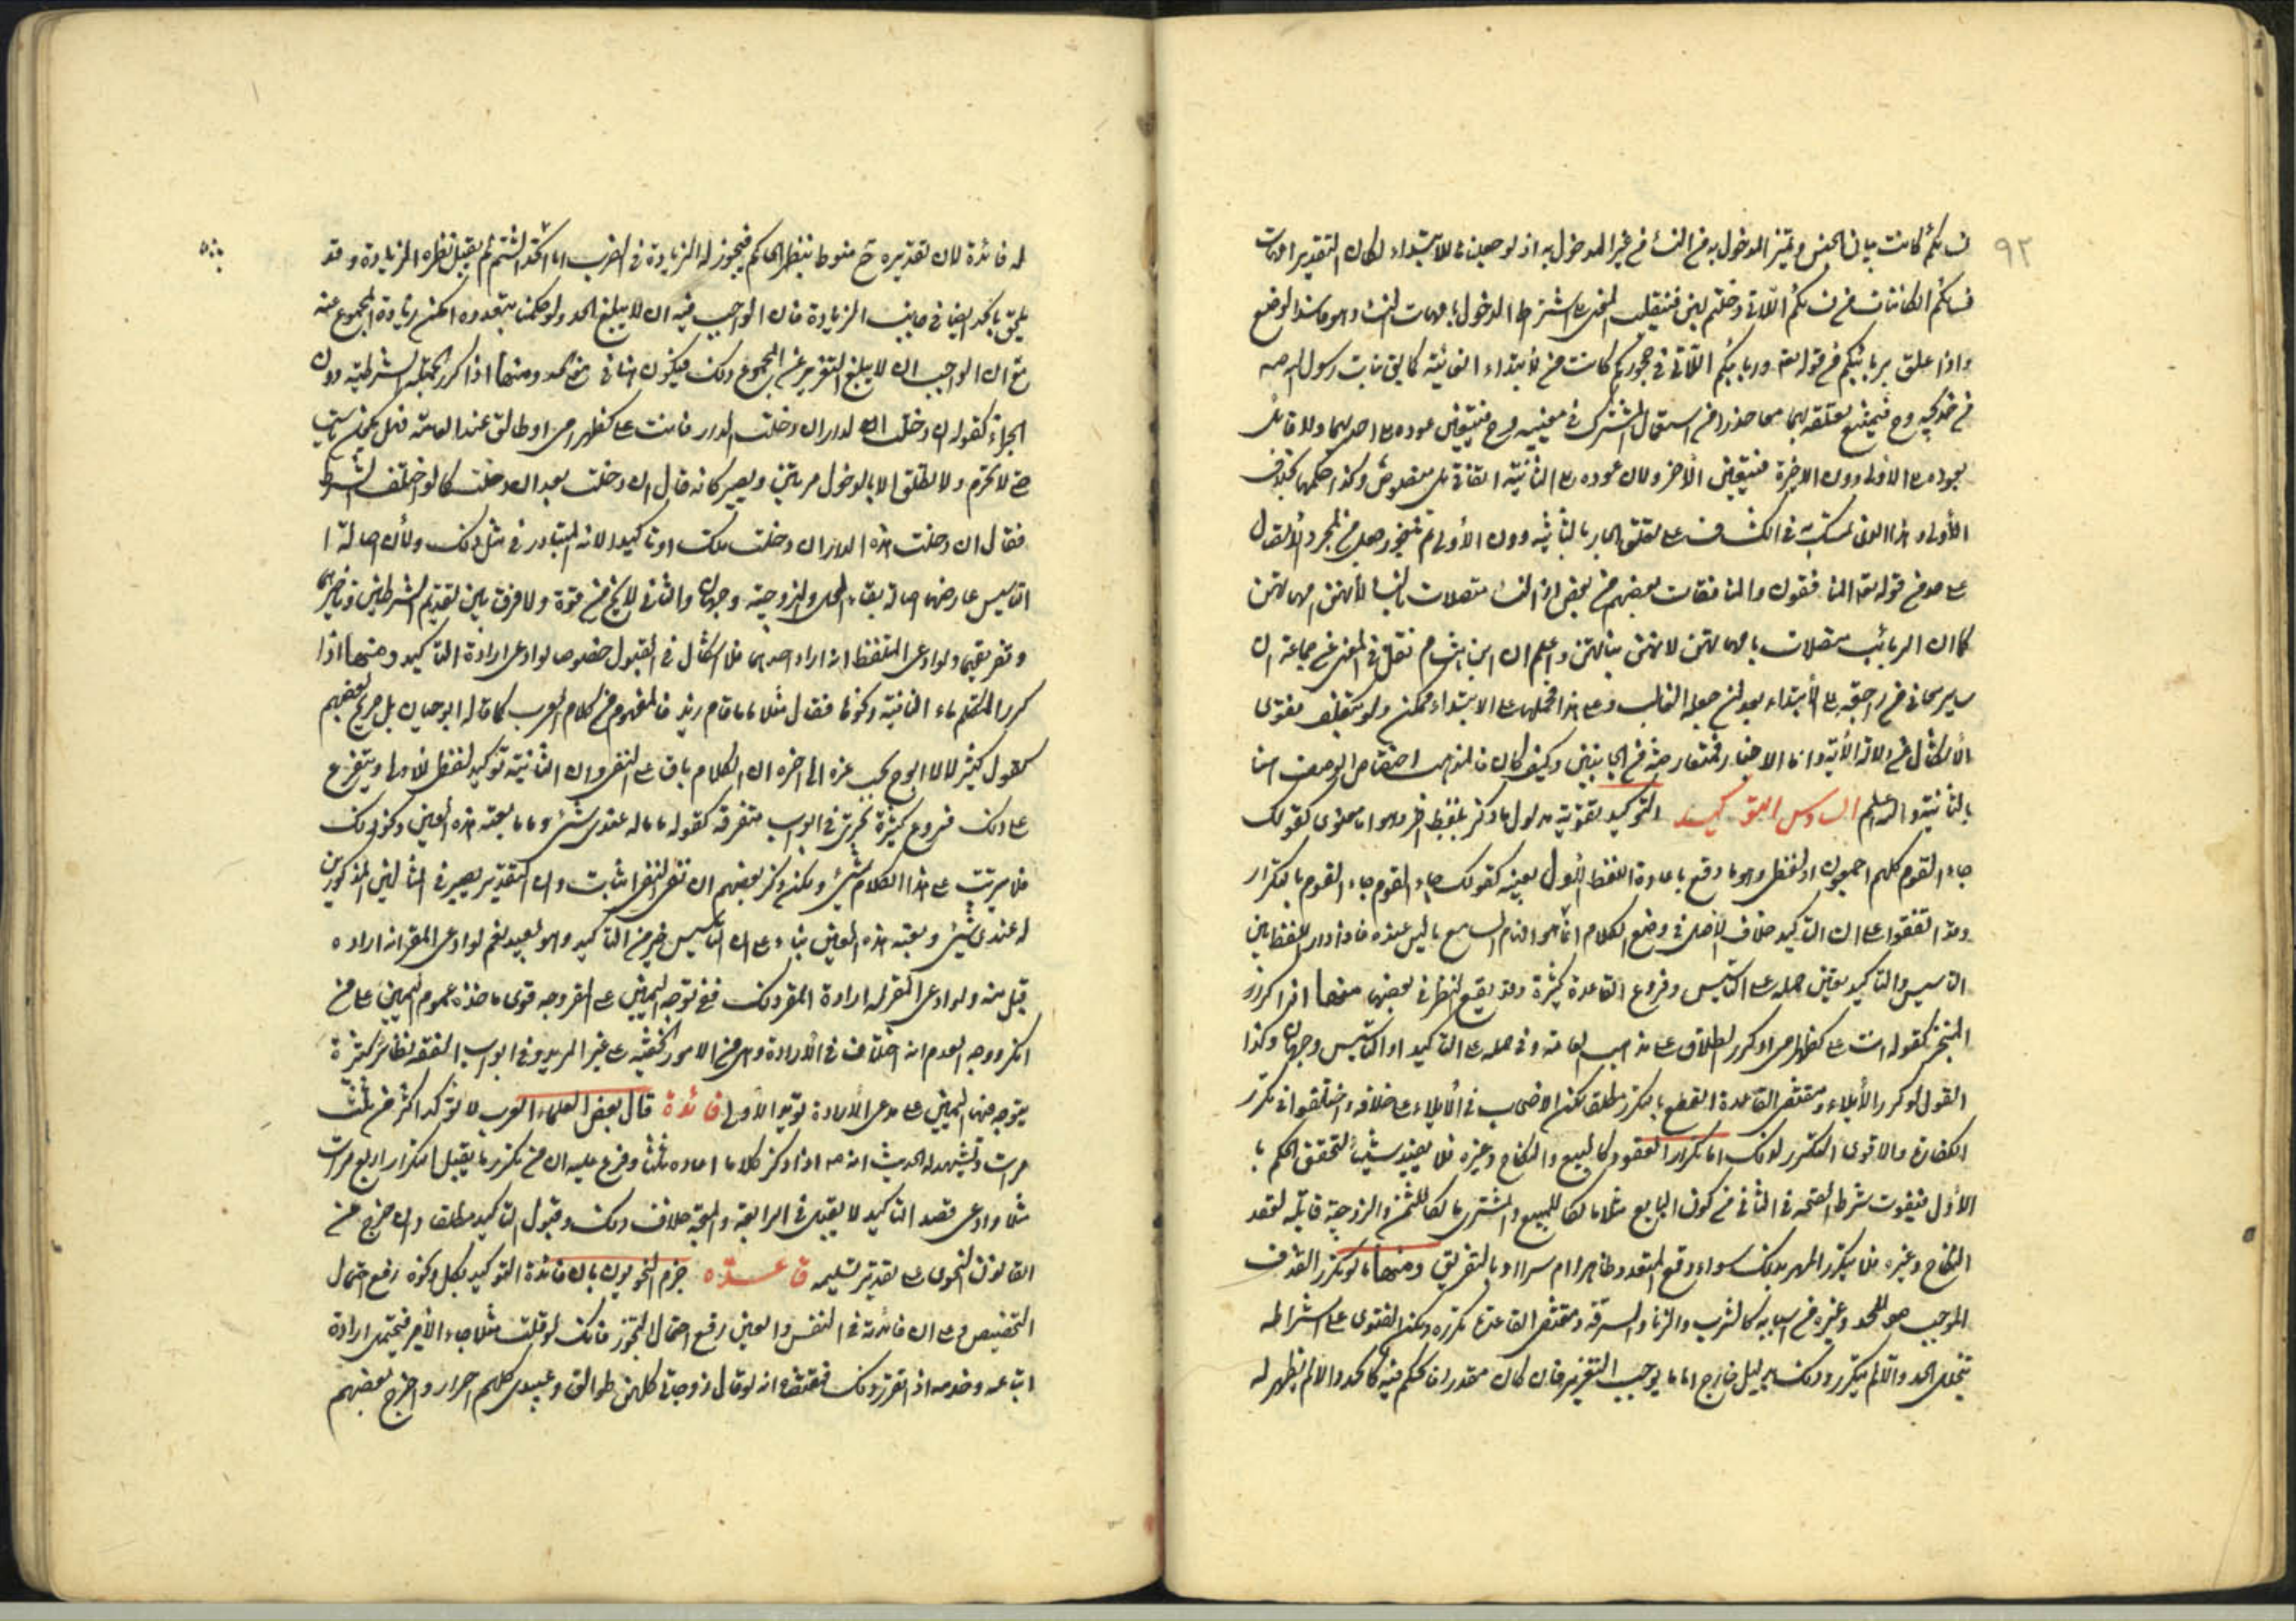 ٩٢
نسائكم كانت بيان الجنس وتميز المدخول بهن من النساء من غير المدخول بهن اذ لو جعلت للابتداء لكان التقدير امهات
نسائكم الكائنات من نسائكم اللاتي دخلتم بهن فينقلب المعنى الى اشتراط الدخول بامهات النساء وهو فاسد الوضع
واذا علق بربائبكم من قوله تعالى وربائبكم اللاتي في حجوركم كانت من لابتداء الغائية كما يقال بنات رسول الله صه
من خديجة وح فيمتنع تعلقه بهما معا حذرا من استعمال المشترك في معنييه وح فيتعين عوده الى احدهما ولا قائل
بعوده الى الاولى دون الاخيرة فيتعين الآخر ولان عوده الى الثانية اتفاقي بل منصوص وكذا حكمها بخلاف
الأولى وهذا الذي تمسك به في الكشاف على تعلق الجار بالثانية دون الأولى ثم تجوز جعل من لمجرد الأتصال
على حد من قوله تعالى المنافقون والمنافقات بعضهم من بعض اذ النساء متصلات بالنساء لأنهن امهاتهن
كما ان الربائب متصلات بامهاتهن لانهن بناتهن واعلم ان ابن هشام نقل في المغنى عن جماعة ان
سائر معاني من راجعة الى الأبتداء بعد ان جعله الغالب وعلى هذا فحملها على الابتداء ممكن ولو بتكلف فقوى
الأشكال في دلالة الآية واما الاخبار فمتعارضة من الجانبين وكيف كان فالمذهب اختصاص الوصف هنا
بالثانية والله اعلم السادس التوكيد التوكيد تقوية مدلول ما ذكر بلفظ آخر وهو اما معنوى كقولك
جاء القوم كلهم اجمعون او لفظى وهو ما وقع باعادة اللفظ الأول بعينه كقولك جاء القوم جاء القوم بالتكرار
وقد اتفقوا على ان التاكيد خلاف الاصل في وضع الكلام انما هو افهام السامع ما ليس عنده فاذا دار اللفظ بين
التاسيس والتاكيد تعين حمله على التاسيس وفروع القاعدة كثيرة وقد يقع النظر في بعضها منها اذا كرر
المنجز كقوله انت على كظهر امى او كرر الطلاق على مذهب العامة وفي حمله على التاكيد او التاسيس وجهان وكذا
القول لو كرر الأيلاء ومقتضى القاعدة القطع بالتكرر مطلقا لكن الاصحاب في الأيلاء على خلافه واختلفوا في تكرر
الكفارة والاقوى التكرر لذلك اما تكرار العقود كالبيع والنكاح وغيره فلا يفيد شيئا لتحقق الحكم با
الأول فيفوت شرط الصحة في الثاني من كون البايع مثلا مالكا للمبيع والمشترى مالكا للثمن والزوجة قابلة لعقد
النكاح وغيره فلا يتكرر المهر بذلك سواء وقع المتعدد ظاهرا ام سرا او بالتفريق ومنها ما لو تكرر القذف
الموجب للحد وغيره من اسبابه كالشرب والزنا والسرقة ومقتضى القاعدة تكرره ولكن الفتوى على اشتراطه
بتخلل الحد والا لم يتكرر وذلك بدليل خارج اما ما يوجب التعزير فان كان مقدرا فحكمه فيه كالحد والا لم يظهر له
له فائدة لان تقديره ح منوط بنظر الحاكم فيجوز له الزيادة في الضرب اما الحد الشتم لم يقبل نظره الزيادة وقد
يلحق بالحد ايضا في جانب الزيادة فان الواجب فيه ان لا يبلغ الحد ولو حكمنا بتعدده امكن زيادة المجموع عنه
مع ان الواجب ان لا يبلغ التعزير عن المجموع ذلك فيكون الثاني مع الحد ومنها اذا كرر الجملة الشرطية دون
الجزاء كقوله ان دخلت الدار ان دخلت الدار فانت على كظهر امى او طالق عند العامة فهل يكون تاسيسا
حتى لا تحرم ولا تطلق الا بالدخول مرتين ويصير كانه قال ان دخلت بعد ان دخلت كما لو اختلف الشرط
فقال ان دخلت هذه الدار ان دخلت تلك او تاكيدا لانه المتبادر في مثل ذلك ولأن اصالة ا
التاسيس عارضها اصالة بقاء الحل والزوجية وجهان والثاني لا يخ من قوة ولا فرق بين تقديم الشرطين وتاخيرهما
وتفريقهما ولو ادعى المتلفظ انه اراد احدهما فلا اشكال في القبول خصوصا لو ادعى ارادة التاكيد ومنها اذا
كرر المتكلم ماء النافية ونحوها فقال مثلا ما ما قام زيد فالمفهوم من كلام العرب كما قاله ابو حيان بل صريح بعضهم
كقول كثير لا لا ابوح بحب عزة الى اخره ان الكلام باق على النفى وان الثانية توكيد لفظى للاولى ويتفرع
على ذلك فروع كثيرة تجرى في ابواب متفرقة كقوله ما ما له عندى شئ وما ما بعته هذه العين ونحو ذلك
فلا يترتب على هذا الكلام شئ ولكن ذكر بعضهم ان نفى النفى اثبات وان التقدير يصير في المثالين المذكورين
له عندى شئ وبعته هذه العين بناء على ان التاسيس خير من التاكيد وهو بعيد نعم لو ادعى المقر انه اراده
قبل منه ولو ادعى المقر له ارادة المقر ذلك ففى توجه اليمين على المقر وجه قوى ماخذه عموم اليمين على من
انكر ووجه العدم انه اختلاف في الأرادة وهى من الامور الخفية على غير المريد وفي ابواب الفقه نظائر كثيرة
يتوجه فيها اليمين على مدعى الأرادة تؤيد الأول فائدة قال بعض العلماء العرب لا تؤكد اكثر من ثلث
مرات ويشهد له الحديث انه صه اذا ذكر كلاما اعاده ثلثا وفرع عليه ان من تكرر ما يقبل التكرار اربع مرات
مثلا وادعى قصد التاكيد لا يقبل في الرابعة والمتجه خلاف ذلك وقبول التاكيد مطلقا وان خرج عن
القانون النحوى على تقدير تسليمه قاعدة جزم النحويون بان فائدة التوكيد بكل ونحوه رفع احتمال
التخصيص وعلى ان فائدته في النفس والعين رفع احتمال التجوز فانك لو قلت مثلا جاء الأمير فيحتمل ارادة
اتباعه وخدمه اذا تقرر ذلك فمقتضاه انه لو قال زوجاتى كلهن طوالق وعبيدى كلهم احرار واخرج بعضهم